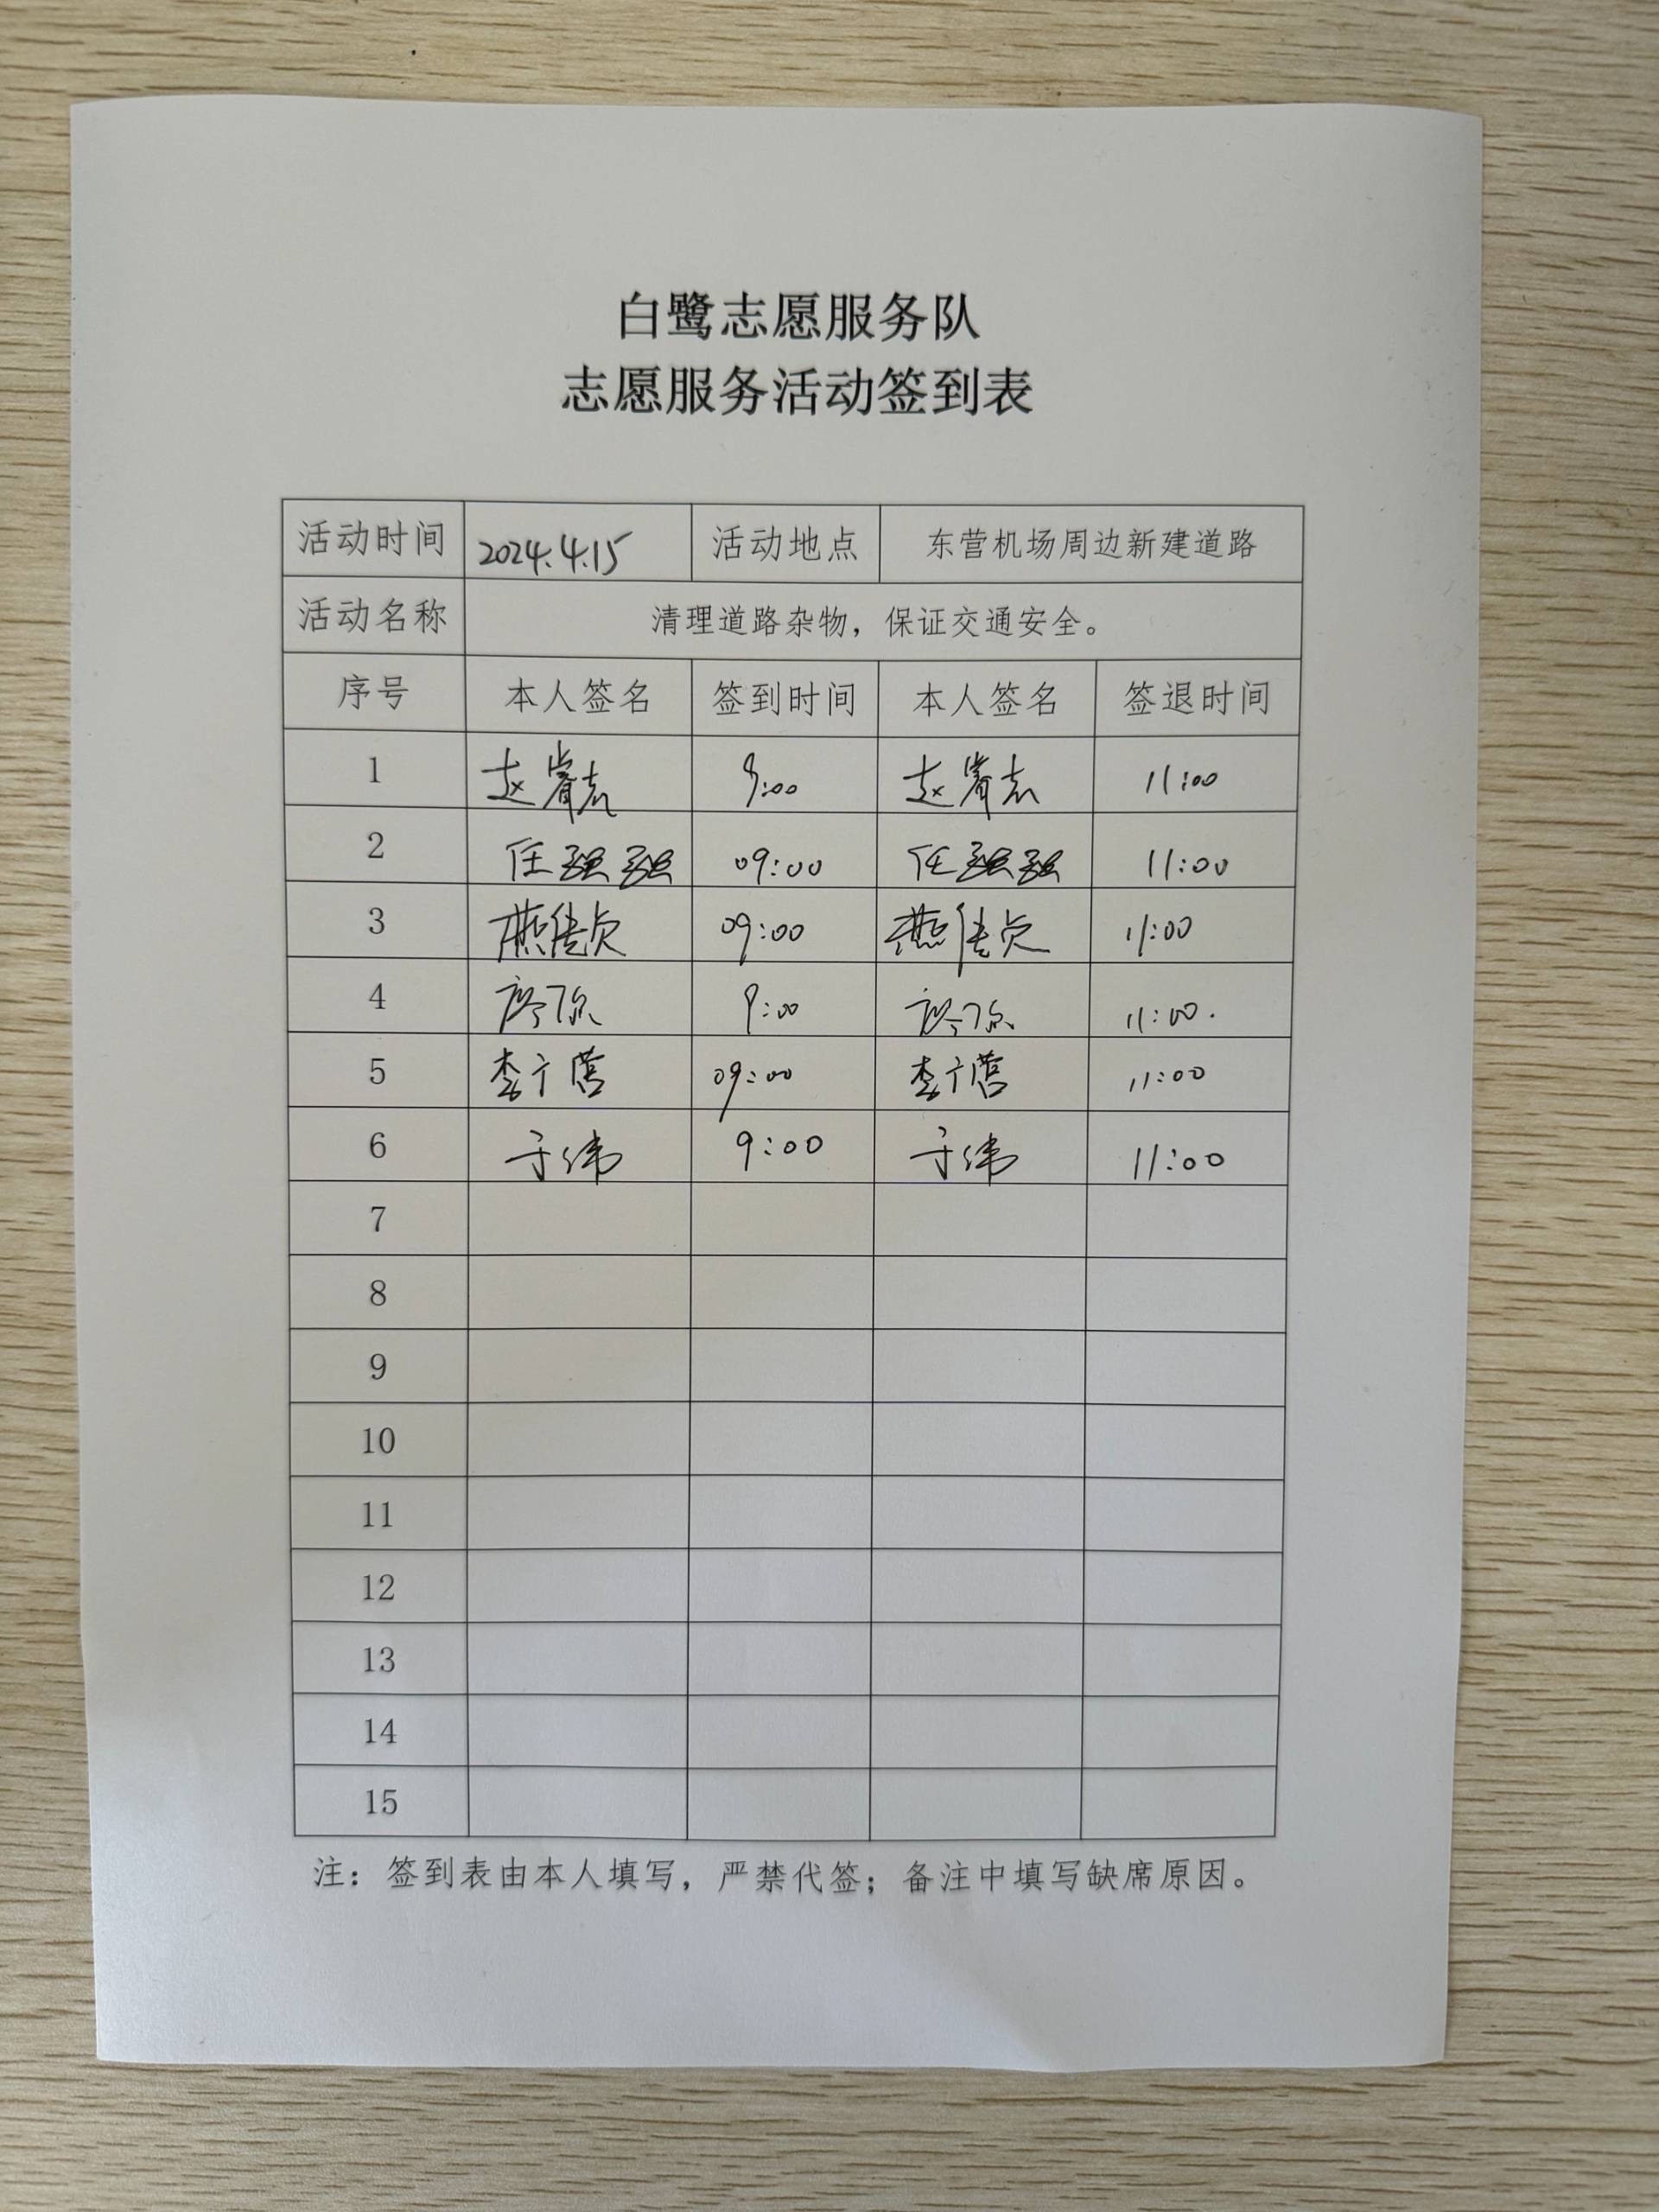 白鹭志愿服务队
志愿服务活动签到表
活动时间 2024.4.15 活动地点 东营机场周边新建道路
活动名称 清理道路杂物，保证交通安全。
序号 本人签名 签到时间 本人签名 签退时间
1 赵睿志 9:00 赵睿志 11:00
2 任强强 09:00 任强强 11:00
3 燕佳贞 09:00 燕佳贞 11:00
4 9:00 11:00.
5 李广营 09:00 李广营 11:00
6 于伟 9:00 于伟 11:00
7
8
9
10
11
12
13
14
15
注：签到表由本人填写，严禁代签；备注中填写缺席原因。